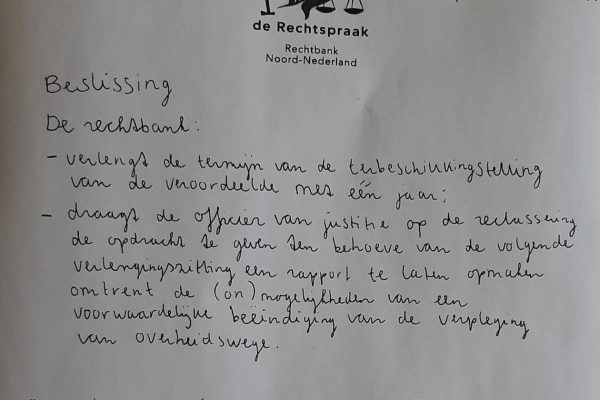 de Rechtspraak
Rechtbank
Noord-Nederland
Beslissing
De rechtbank:
- verlengt de termijn van de terbeschikkingstelling
van de veroordeelde met één jaar;
- draagt de officier van justitie op de reclassering
de opdracht te geven ten behoeve van de volgende
verlengingszitting een rapport te laten opmaken
omtrent de (on)mogelijkheden van een
voorwaardelijke beëindiging van de verpleging
van overheidswege.